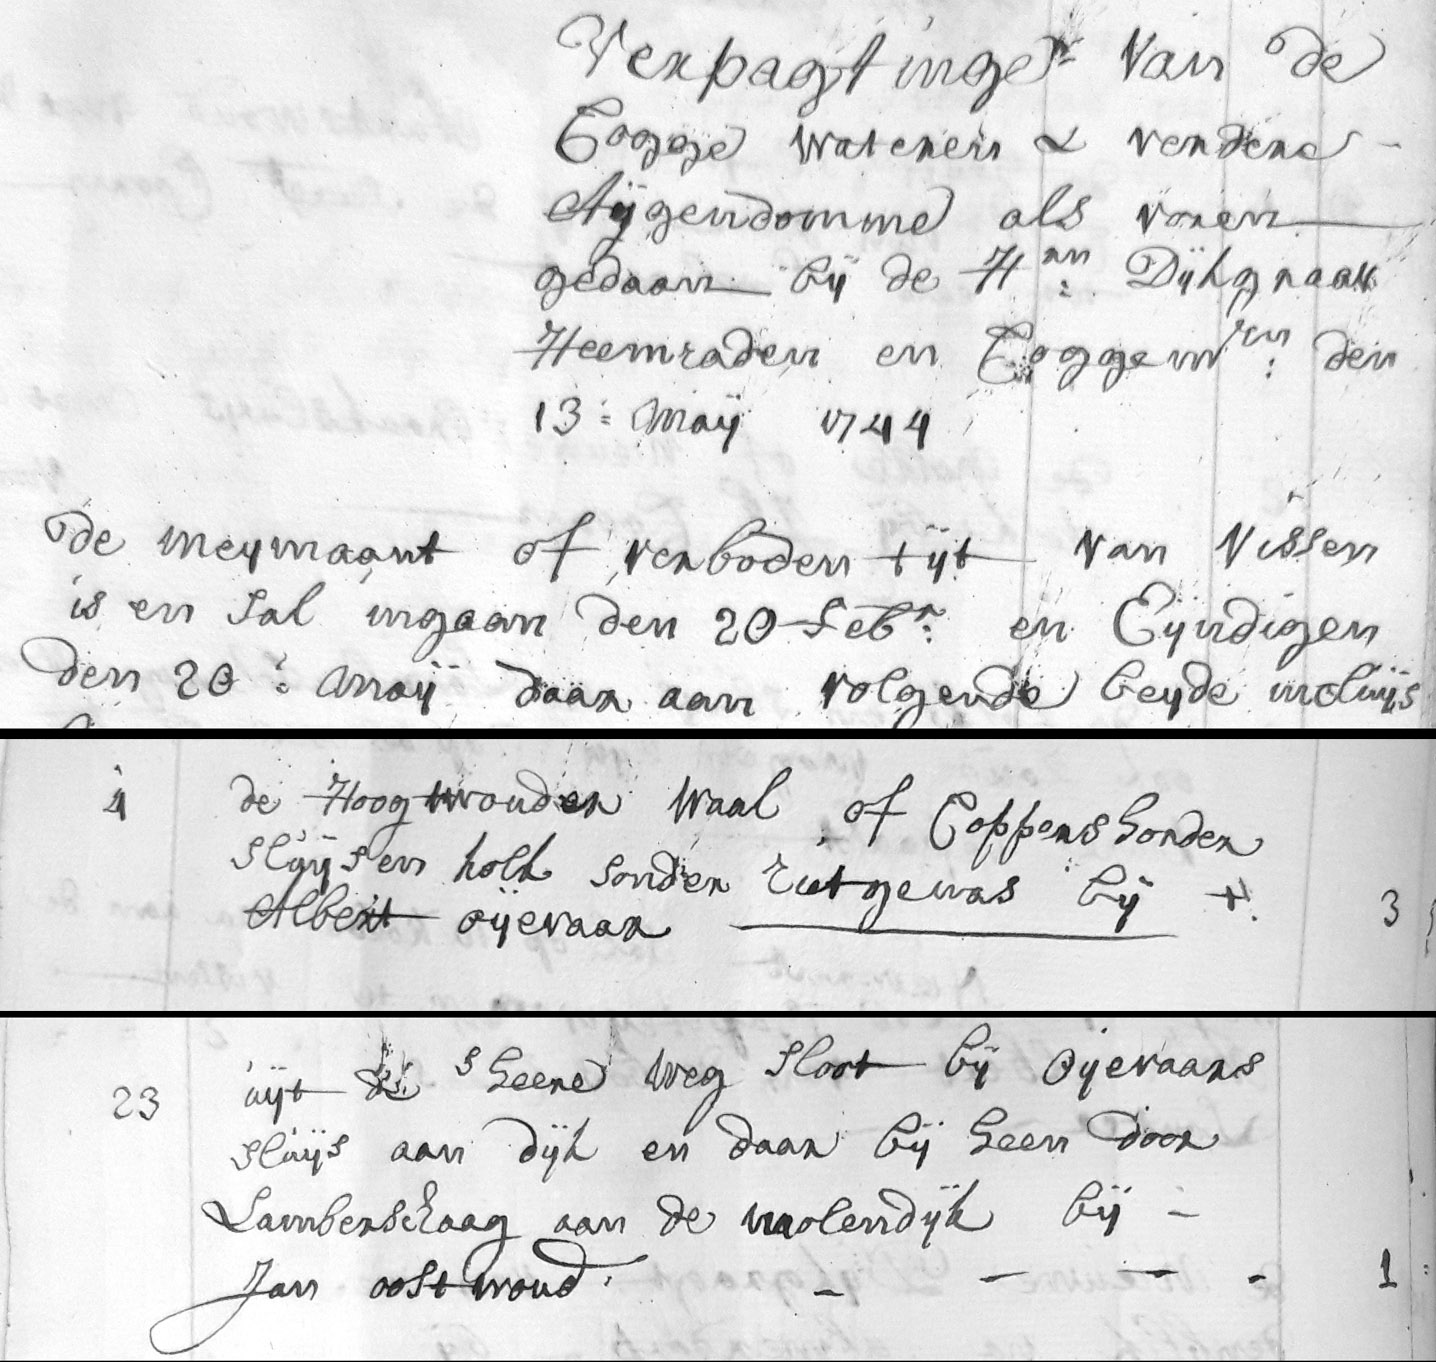 Verpagtinge van de
Cogge wateren & verdere
Aijgendomme als voren
gedaan bij de H:ren Dijkgraaff
Heemraden en Coggem:ren den
13: Maij 1744
De meijmaant of verboden tijt van vissen
is en sal ingaan den 20 Feb:r en Eijndigen
den 20: Maij daar aan volgende beyde incluijs
4 de Hoogtwouder Waal of Coppenshorder
Sluijsen kolk sonder Rietgewas bij
Albert oijevaar 3
23 uijt de sheere Weg Sloot bij Oijevaars
sluijs aan dijk en daar bij heen door
Lamberschaag aan de molendijk bij
Jan oostwoud 1